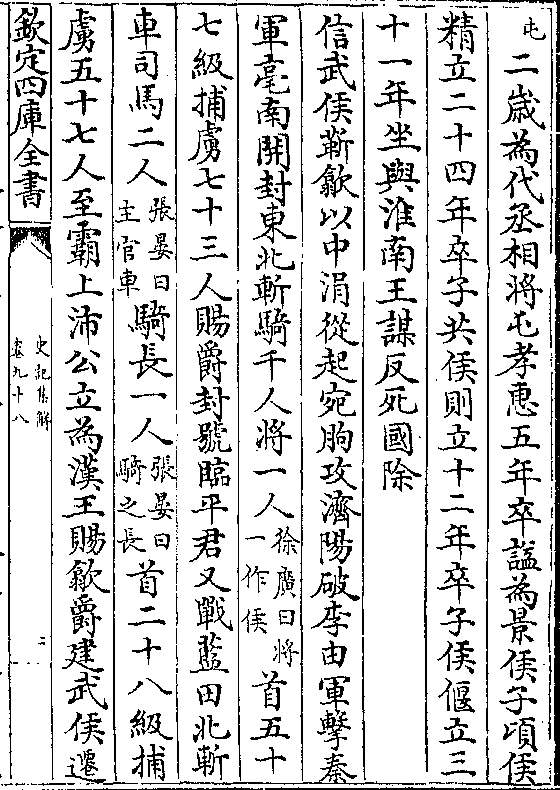 屯
二歲為代丞相將屯孝惠五年卒諡為景侯子頃侯
精立二十四年卒子共侯則立十二年卒子侯偃立三
十一年坐與淮南王謀反死國除
信武侯靳歙以中涓從起宛朐攻濟陽破李由軍擊秦
軍亳南開封東北斬騎千人將一人徐廣曰將一作侯首五十
七級捕虜七十三人賜爵封號臨平君又戰藍田北斬
車司馬二人張晏曰主官車騎長一人張晏曰騎之長首二十八級捕
虜五十七人至霸上沛公立為漢王賜歙爵建武侯遷
欽定四庫全書
史記集解
卷九十八
二